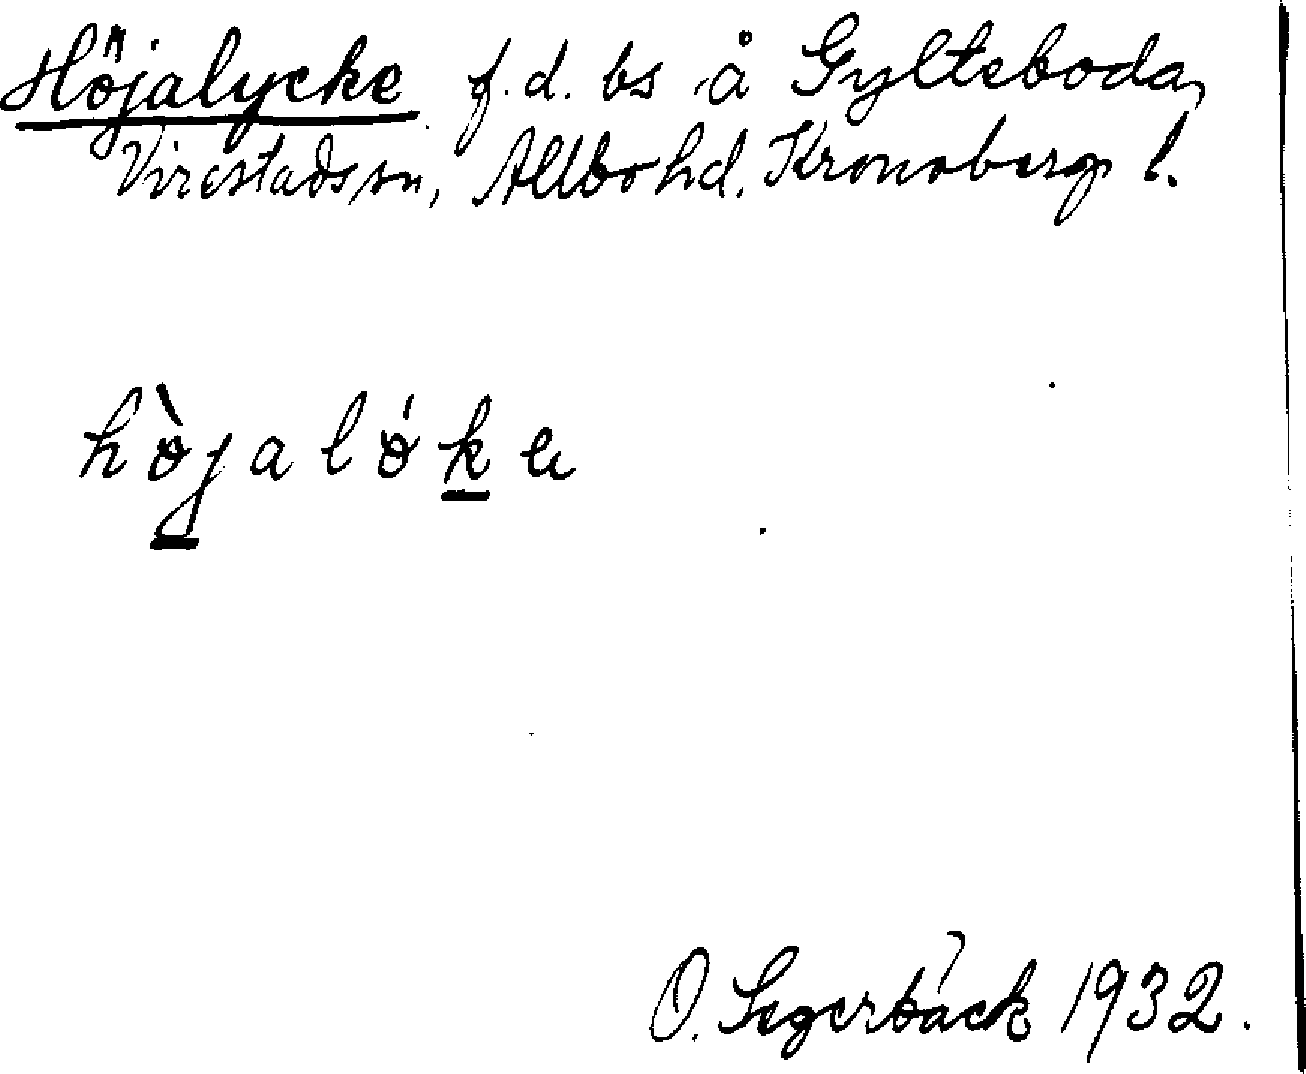 Höjalycke f.d. bs å Gylteboda,
Virestads sn, Allbo hd. Kronoberg l.
hòjalókə
O. Segerbäck 1932.